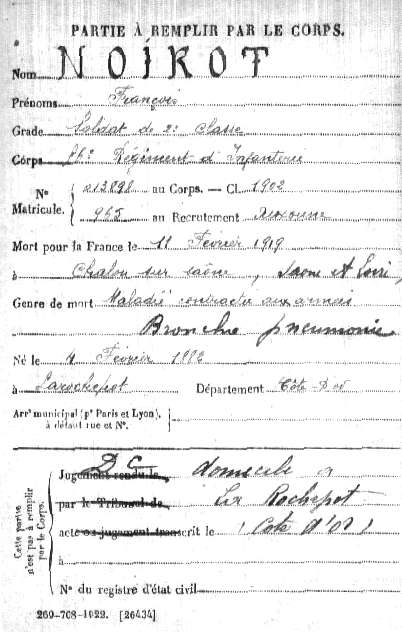 PARTIE À REMPLIR PAR LE CORPS.
Nom NOIROT
Prénoms François
Grade Soldat de 2e Classe
Corps Régiment d'Infanterie
Nº Matricule. 213898 au Corps. — Cl. 1902
965 au Recrutement Auxonne
Mort pour la France le 11 Février 1919
à Chalon sur Saône, Saone et Loire
Genre de mort Maladie contractée aux armées
Broncho pneumonie
Né le 4 Février 1882
à Larochepot Département Côte-D'or
Arrt municipal (pr Paris et Lyon), à défaut rue et Nº.
Cette partie n'est pas à remplir par le Corps.
D.G. domicilé a
Jugement rendu le
par le Tribunal de La Rochepot
acte ou jugement transcrit le (Cote d'Or)
à
Nº du registre d'état civil
269-708-1922. [26434]